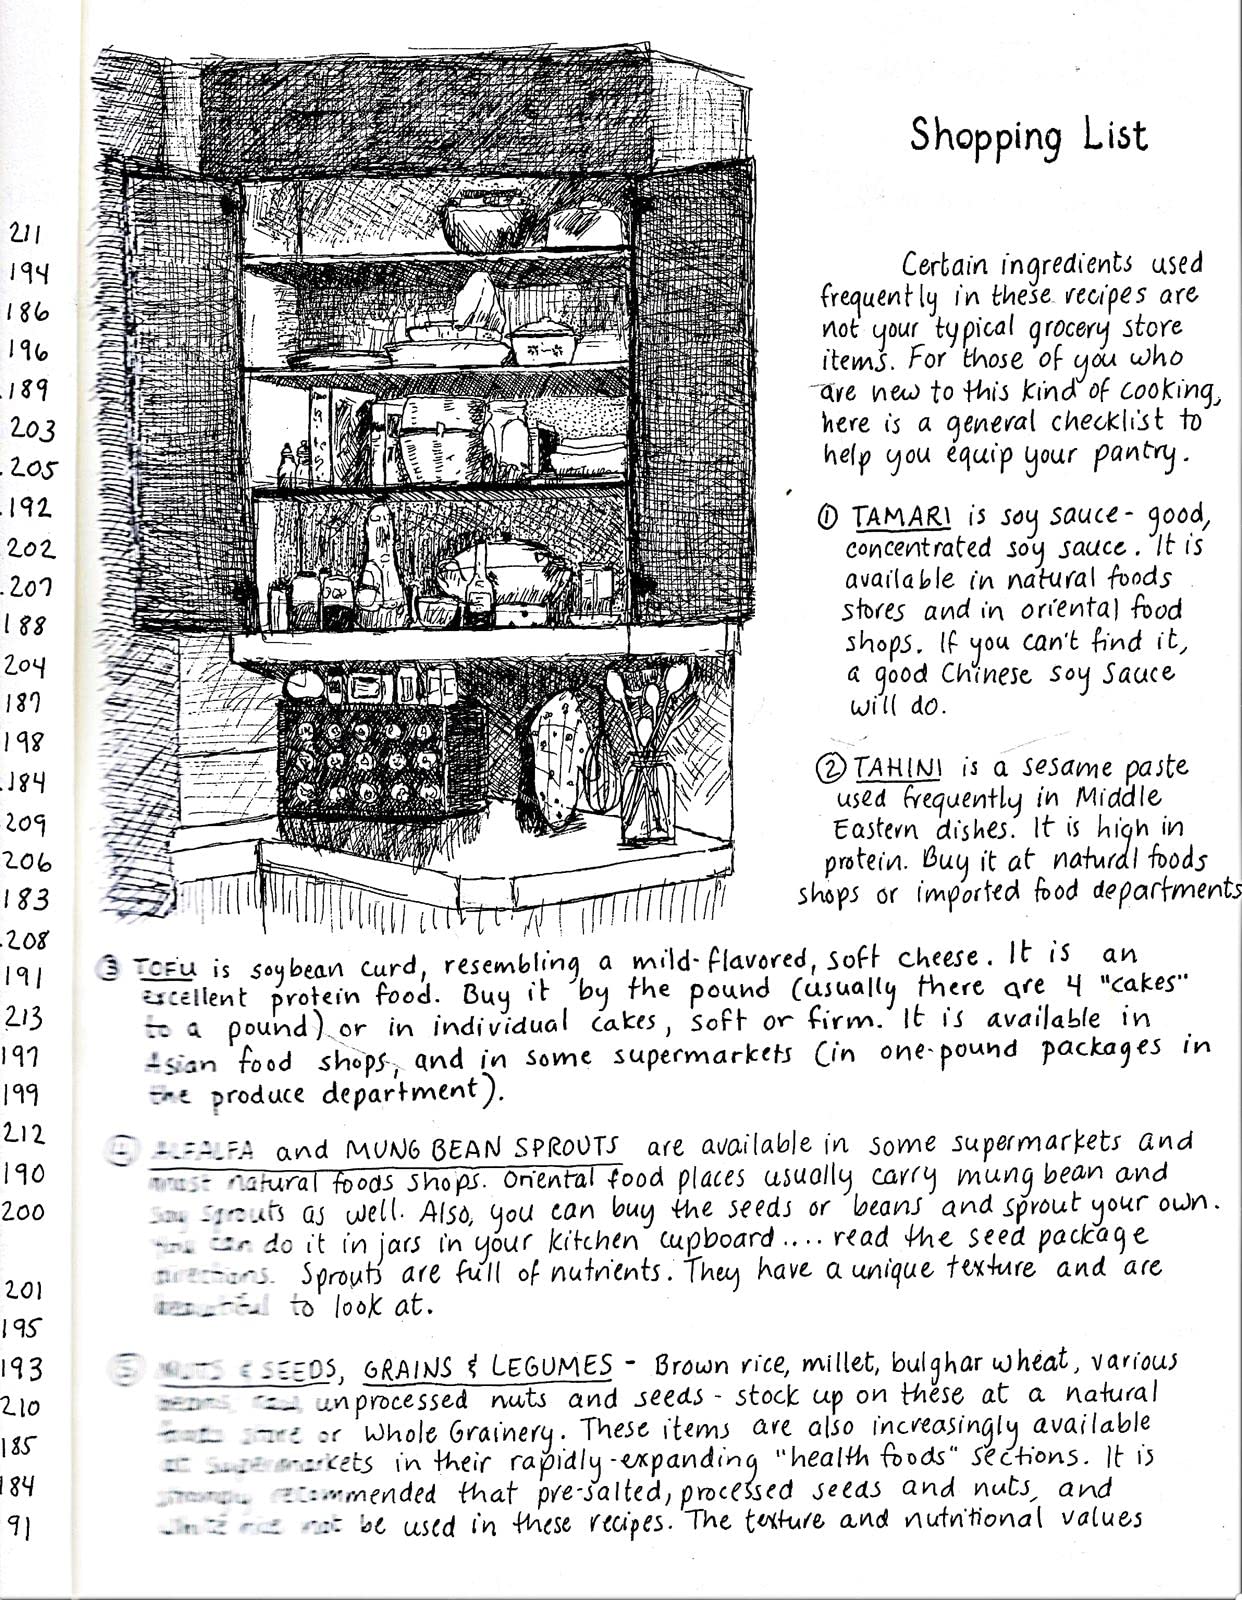 211
194
186
196
.189
203
.205
.192
202
.207
188
204
187
198
.184
.209
206
183
.208
191
213
197
199
212
190
200
201
195
193
210
185
184
91
Shopping List
Certain ingredients used
frequently in these recipes are
not your typical grocery store
items. For those of you who
are new to this kind of cooking,
here is a general checklist to
help you equip your pantry.
① TAMARI is soy sauce - good,
concentrated soy sauce. It is
available in natural foods
stores and in oriental food
shops. If you can't find it,
a good Chinese soy sauce
will do.
② TAHINI is a sesame paste
used frequently in Middle
Eastern dishes. It is high in
protein. Buy it at natural foods
shops or imported food departments
③ TOFU is soybean curd, resembling a mild-flavored, soft cheese. It is an
excellent protein food. Buy it by the pound (usually there are 4 "cakes"
to a pound) or in individual cakes, soft or firm. It is available in
Asian food shops, and in some supermarkets (in one-pound packages in
the produce department).
④ ALFALFA and MUNG BEAN SPROUTS are available in some supermarkets and
most natural foods shops. Oriental food places usually carry mung bean and
soy sprouts as well. Also, you can buy the seeds or beans and sprout your own.
You can do it in jars in your kitchen cupboard.... read the seed package
directions. Sprouts are full of nutrients. They have a unique texture and are
beautiful to look at.
⑤ NUTS & SEEDS, GRAINS & LEGUMES - Brown rice, millet, bulghar wheat, various
beans, raw, unprocessed nuts and seeds - stock up on these at a natural
foods store or Whole Grainery. These items are also increasingly available
at supermarkets in their rapidly-expanding "health foods" sections. It is
strongly recommended that pre-salted, processed seeds and nuts, and
white rice not be used in these recipes. The texture and nutritional values